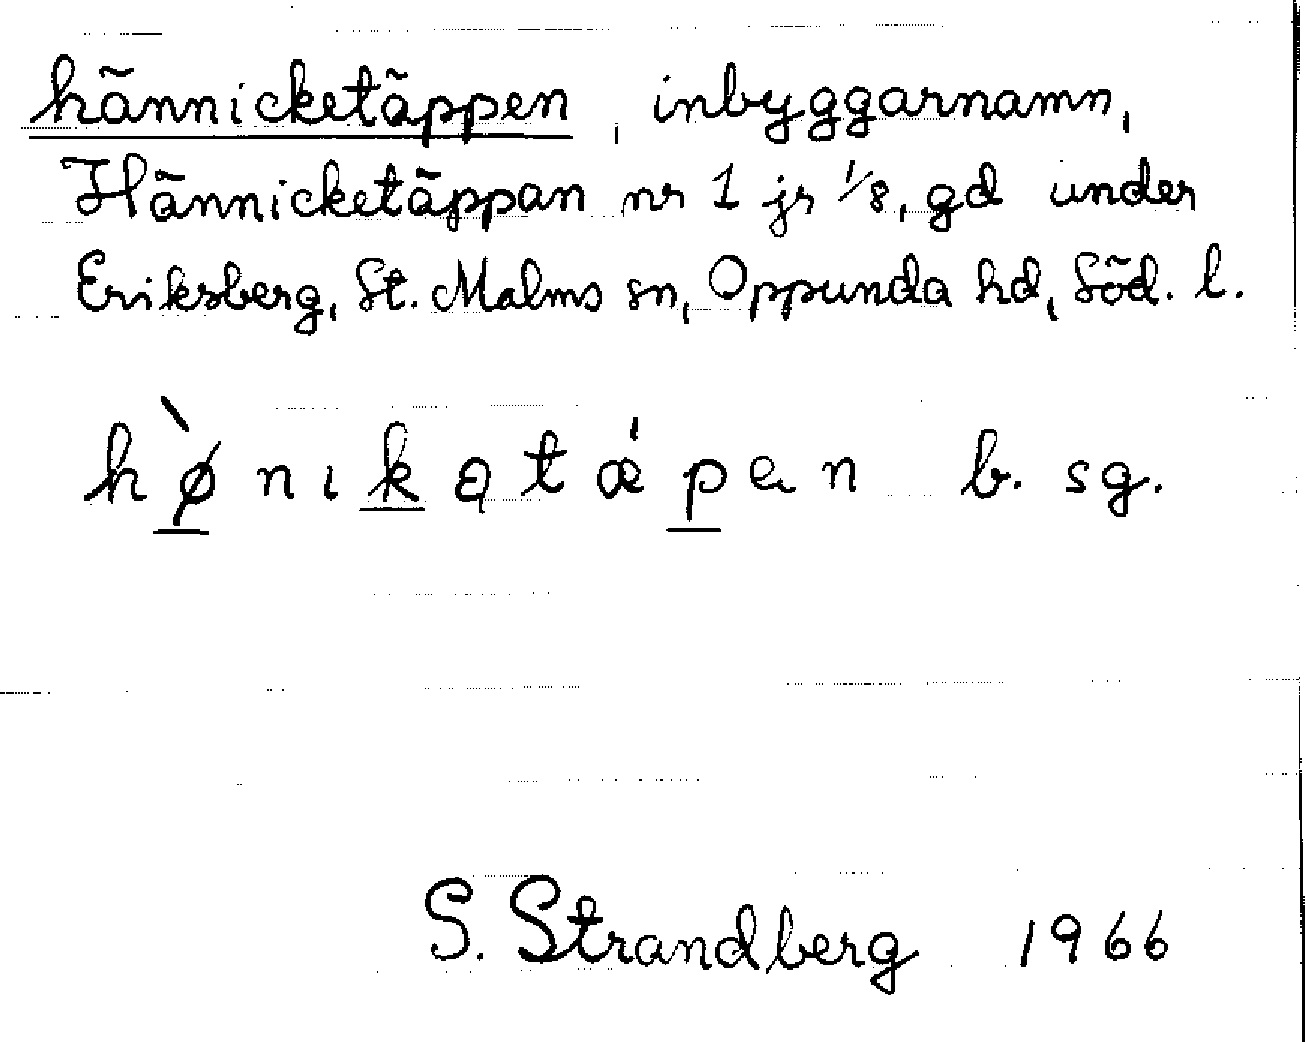 hännicketäppen, inbyggarnamn,
Hännicketäppan nr 1 js 1/8, gd under
Eriksberg, St. Malms sn, Oppunda hd, Söd. l.
hø̀nıkətǽpen b. sg.
S. Strandberg 1966